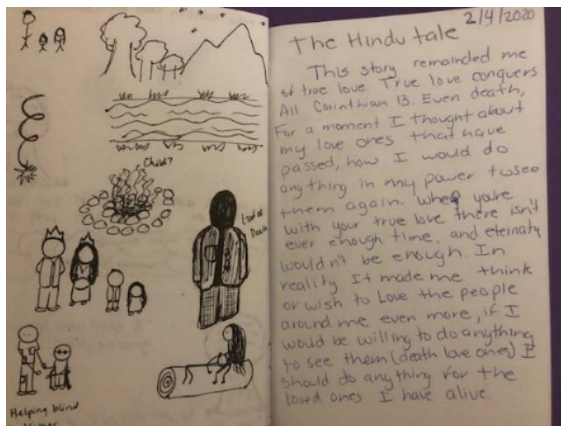 Child?
Lord of
Death
Helping blind
2/4/2020
The Hindu tale
This story remainded me
of true love. True love conquers
All Corinthian 13. Even death,
For a moment I thought about
my love ones that have
passed, how I would do
anything in my power to see
them again. When you're
with your true love there isn't
ever enough time, and eternaty
wouldn't be enough. In
reality It made me think
or wish to Love the people
around me even more, if I
would be willing to do anything
to see them (death love ones) I
should do anything for the
loved ones I have alive.